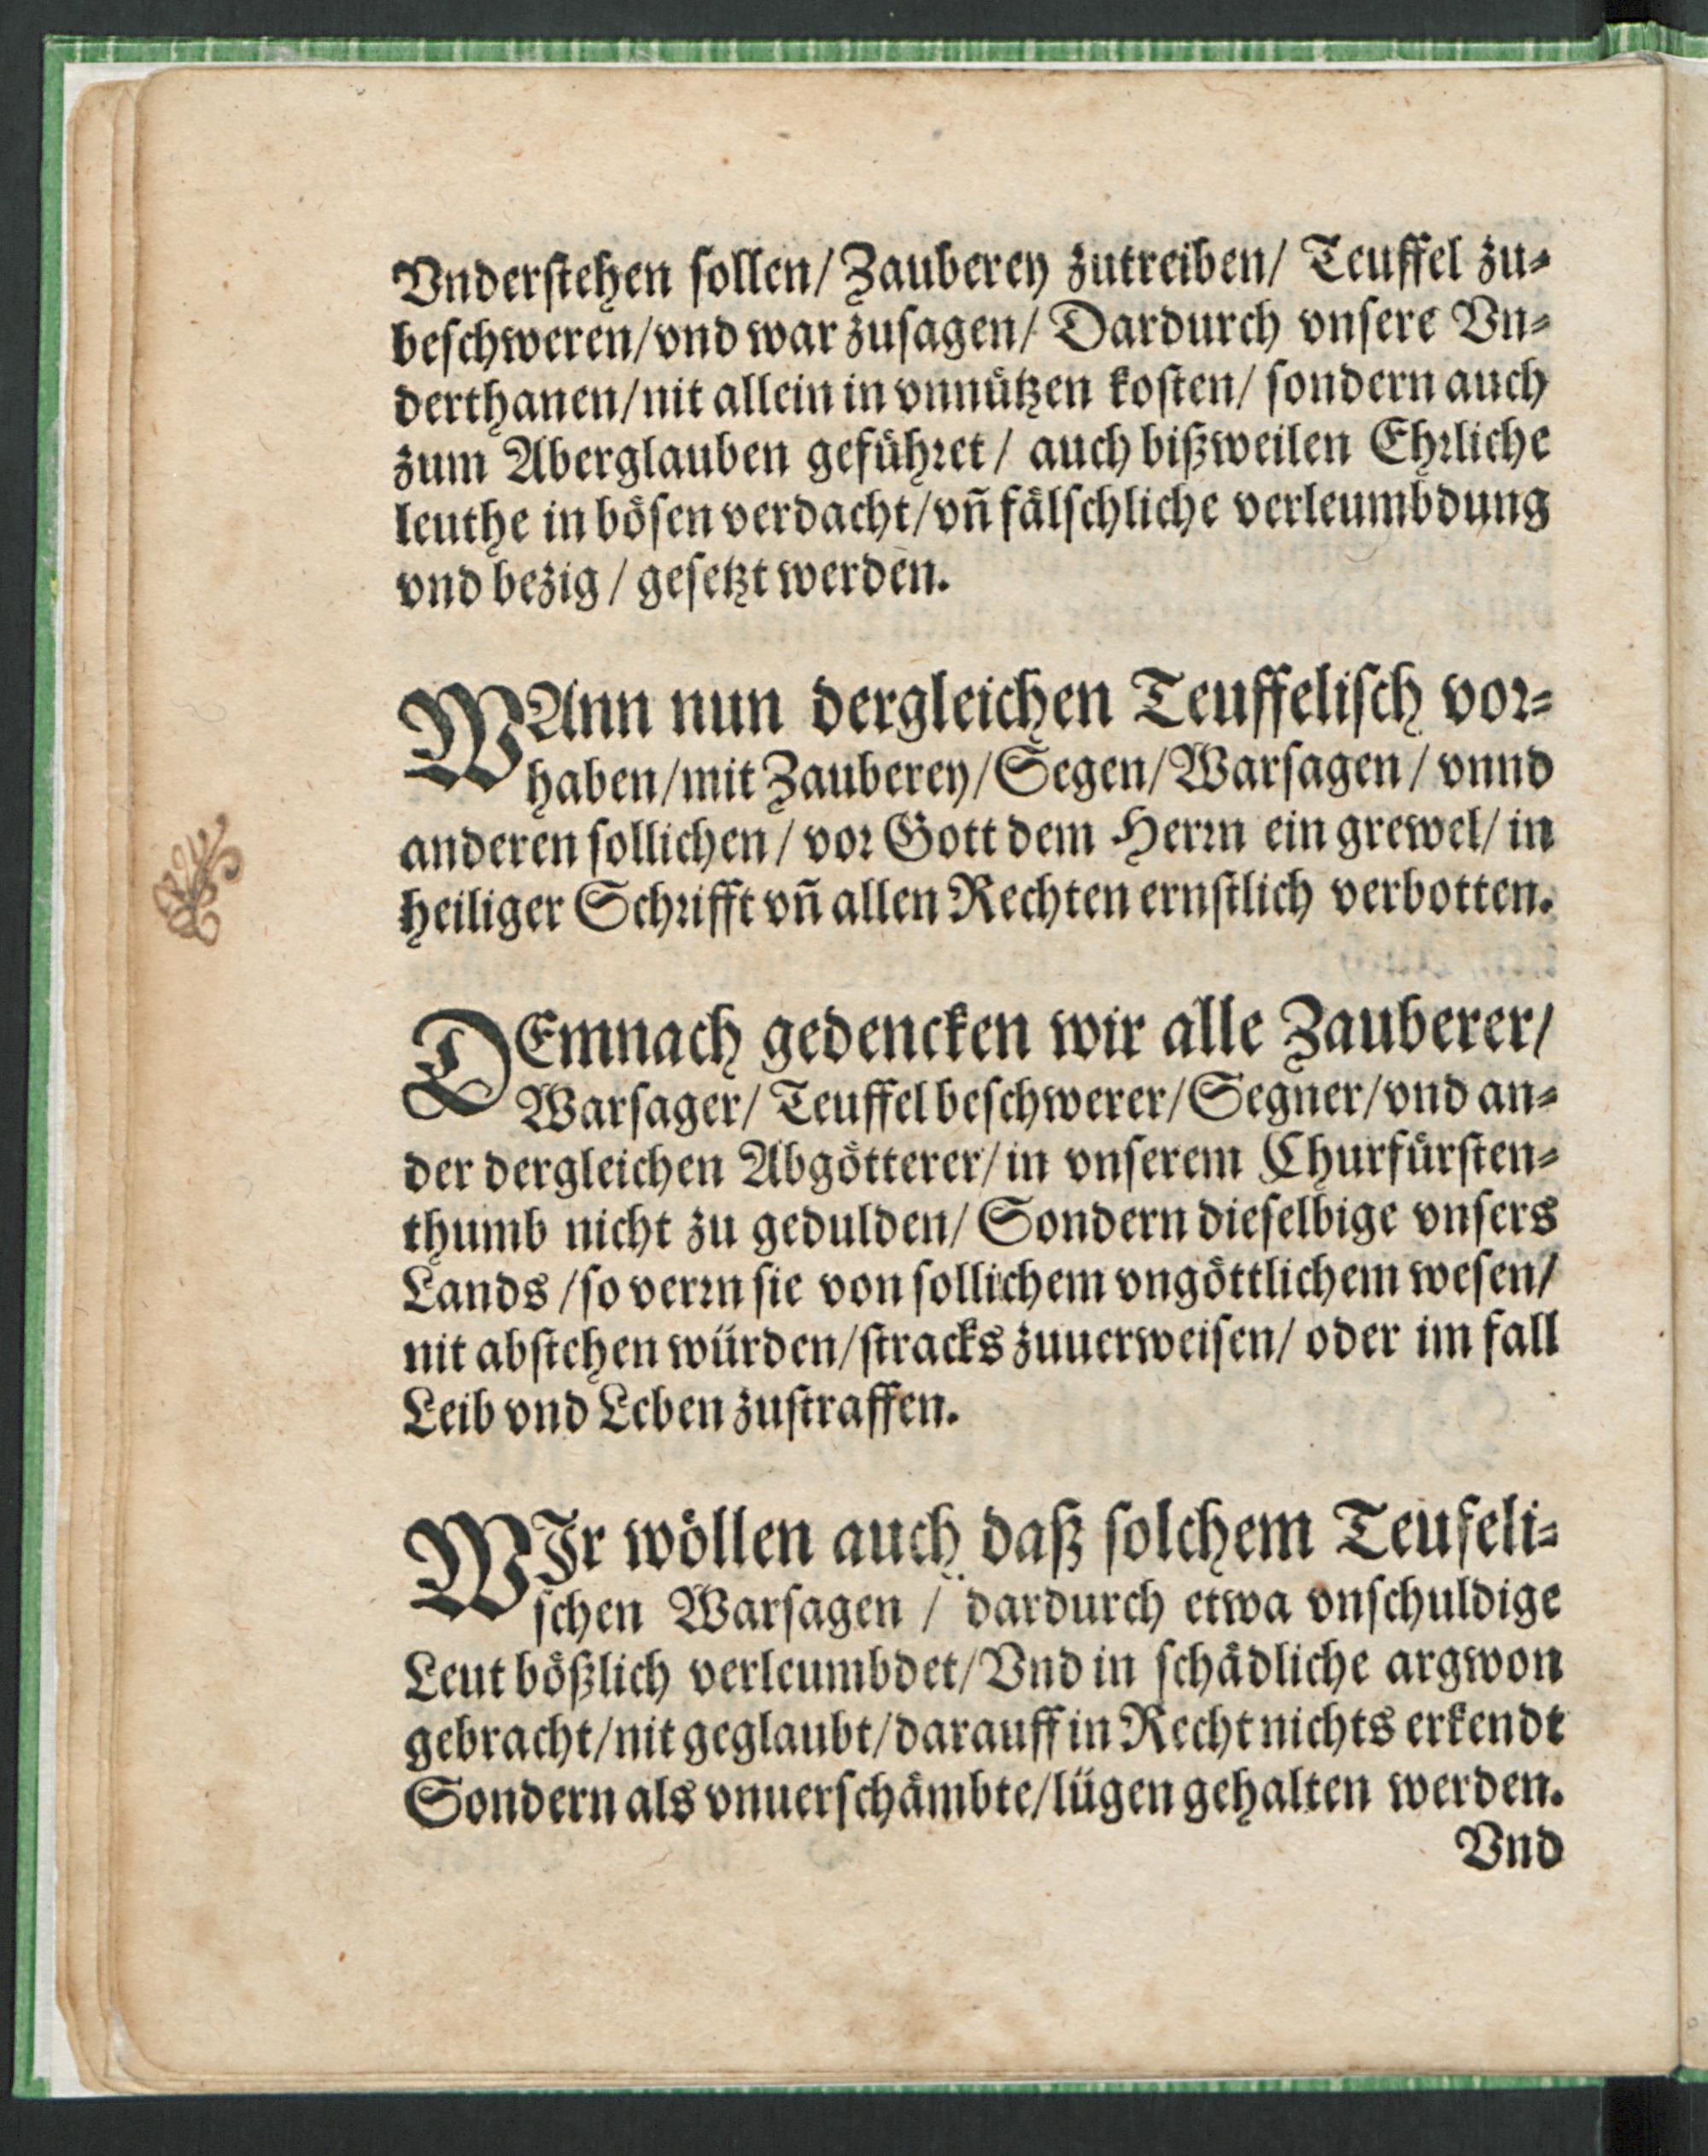 Vnderſtehen ſollen/ Zauberey zutreiben/ Teuffel zu⸗
beſchweren/ vnd war zuſagen/ Dardurch vnſere Vn⸗
derthanen/ nit allein in vnnuͤtzen koſten/ ſondern auch
zum Aberglauben gefuͤhꝛet/ auch bißweilen Ehꝛliche
leuthe in boͤſen verdacht/ vñ faͤlſchliche verleumbdung
vnd bezig/ geſetzt werden.
WAnn nun dergleichen Teuffeliſch voꝛ⸗
haben/ mit Zauberey/ Segen/ Warſagen/ vnnd
anderen ſollichen/ voꝛ Gott dem Herꝛn ein grewel/ in
heiliger Schꝛifft vñ allen Rechten ernſtlich verbotten.
DEmnach gedencken wir alle Zauberer/
Warſager/ Teuffel beſchwerer/ Segner/ vnd an⸗
der dergleichen Abgoͤtterer/ in vnſerem Churfuͤrſten⸗
thumb nicht zu gedulden/ Sondern dieſelbige vnſers
Lands/ ſo verꝛn ſie von ſollichem vngoͤttlichem weſen/
nit abſtehen wuͤrden/ ſtracks zuuerweiſen/ oder im fall
Leib vnd Leben zuſtraffen.
WIr woͤllen auch daß ſolchem Teufeli⸗
ſchen Warſagen/ dardurch etwa vnſchuldige
Leut boͤßlich verleumbdet/ Vnd in ſchaͤdliche argwon
gebracht/ nit geglaubt/ darauff in Recht nichts erkendt
Sondern als vnuerſchaͤmbte/ luͤgen gehalten werden.
Vnd